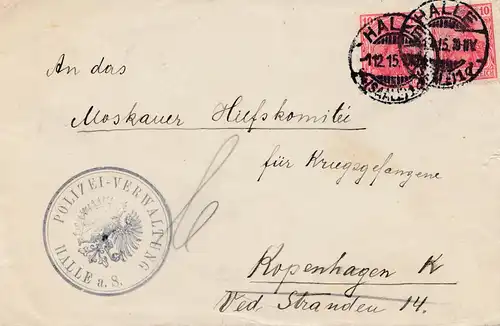 HALLE
1.12.15.
(SAALE)
HALLE
10
10
An das
Moskauer Hilfskomitei
für Kriegsgefangene
Kopenhagen K
Ved Stranden 14.
POLIZEI-VERWALTUNG
HALLE a. S.